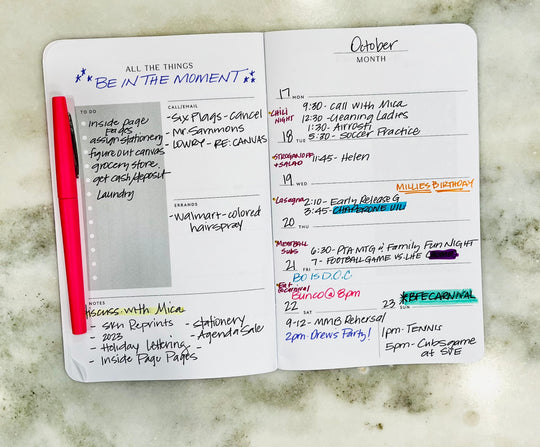 ALL THE THINGS
BE IN THE MOMENT
TO DO
inside page
Pages
assign stationery
figure out canvas
grocery store
get cash/deposit
Laundry
CALL/EMAIL
-Six Flags - cancel
-Mr Sammons
-LOWRY - RE: CANVAS
ERRANDS
-Walmart - colored
hairspray
NOTES
iscuss with Mica
- Reprints
2023
- Holiday Lettering
- Inside Page Pages
- Stationery
- Agenda Sale
-
October
MONTH
17 MON
CHILI
NIGHT
9:30 - Call with Mica
12:30 - Cleaning Ladies
1:30 - Airrosti
5:30 - Soccer Practice
18 TUE
STROGANOFF
+ SALAD
11:45 - Helen
19 WED
MILLIES BIRTHDAY
Lasagna
2:10 - Early Release G
3:45 - CHAPERONE UIL
20 THU
MEATBALL
SUBS
6:30 - PTA MTG & Family Fun NIGHT
7 - FOOTBALL GAME VS. LIFE
21 FRI
BO IS D.O.C
Eat @
carnival
Bunco @ 8pm
22 SAT
9-12 - MMB Rehersal
2pm - Drews Party!
23 SUN
*BFE CARNIVAL
1pm - TENNIS
5pm - Cubs game
at SVE